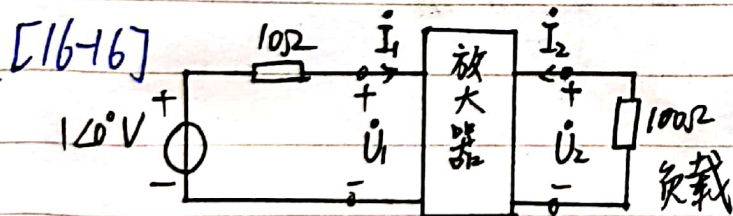 [16-16]
10Ω
İ₁
放大器
İ₂
+
1∠0°V
-
+
U̇₁
-
+
U̇₂
-
100Ω
负载